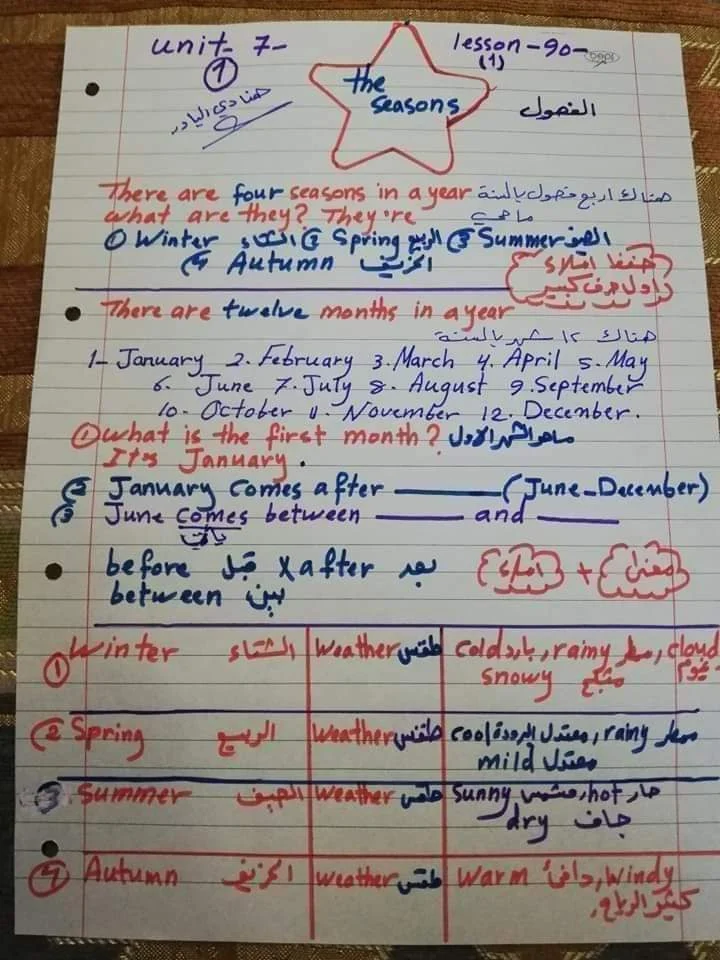 unit- 7-
lesson -90-
(1)
1
the seasons
الفصول
There are four seasons in a year هناك اربع فصول بالسنة
what are they? They're ماهي
① Winter الشتاء ② Spring الربيع ③ Summer الصيف
④ Autumn الخريف
حفظا املاء
اول حرف كبير
There are twelve months in a year
هناك ١٢ شهر بالسنة
1- January 2. February 3. March 4. April 5. May
6. June 7. July 8. August 9. September
10. October 11. November 12. December.
① what is the first month? ماهو الشهر الاول
It's January.
② January comes after ——— (June-December)
③ June comes between ——— and ———
يأتي
before قبل X after بعد
between بين
معنى + املاء
① Winter الشتاء weather طقس cold بارد, rainy مطر, cloud غيوم
snowy مثلج
② Spring الربيع weather طقس cool معتدل البرودة, rainy مطر
mild معتدل
③ Summer الصيف weather طقس sunny مشمس, hot حار
dry جاف
④ Autumn الخريف weather طقس warm دافئ, windy
كثير الرياح